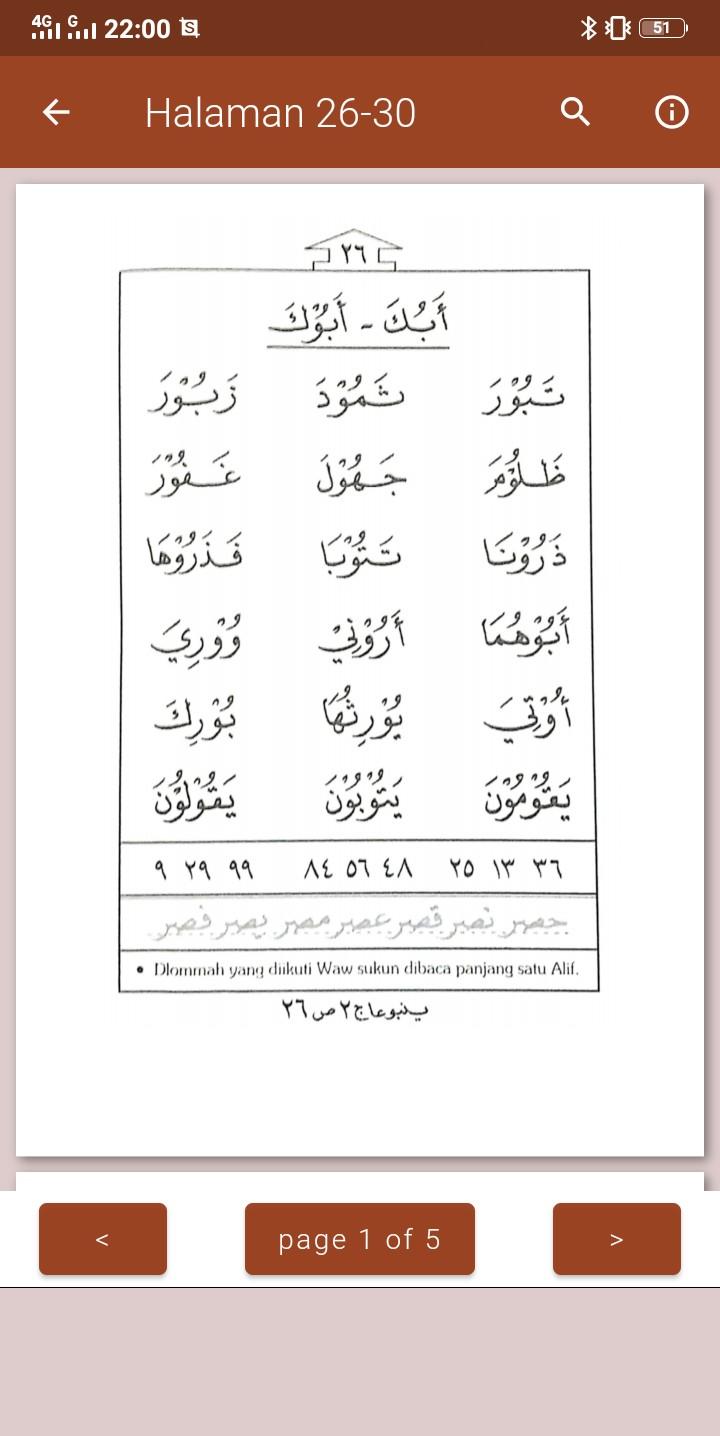 4G G 22:00 51
Halaman 26-30
٢٦
أَبُكَ - أَبُوْكَ
تَبُوْرَ ثَمُوْدَ زَبُوْرَ
ظَلُوْمَ جَهُوْلَ غَفُوْرَ
ذَرُوْنَا تَتُوْبَا فَذَرُوْهَا
أَبُوْهُمَا أَرُوْنِيْ وُوْرِيَ
أُوْتِيَ يُوْرِثُهَا بُوْرِكَ
يَقُوْمُوْنَ يَتُوْبُوْنَ يَقُوْلُوْنَ
٣٦ ١٣ ٢٥ ٤٨ ٥٦ ٨٤ ٩٩ ٢٩ ٩
حصر نصر قصر عصر مصر يصر فصر
• Dlommah yang diikuti Waw sukun dibaca panjang satu Alif.
ينبوعا ج ٢ ص ٢٦
< page 1 of 5 >